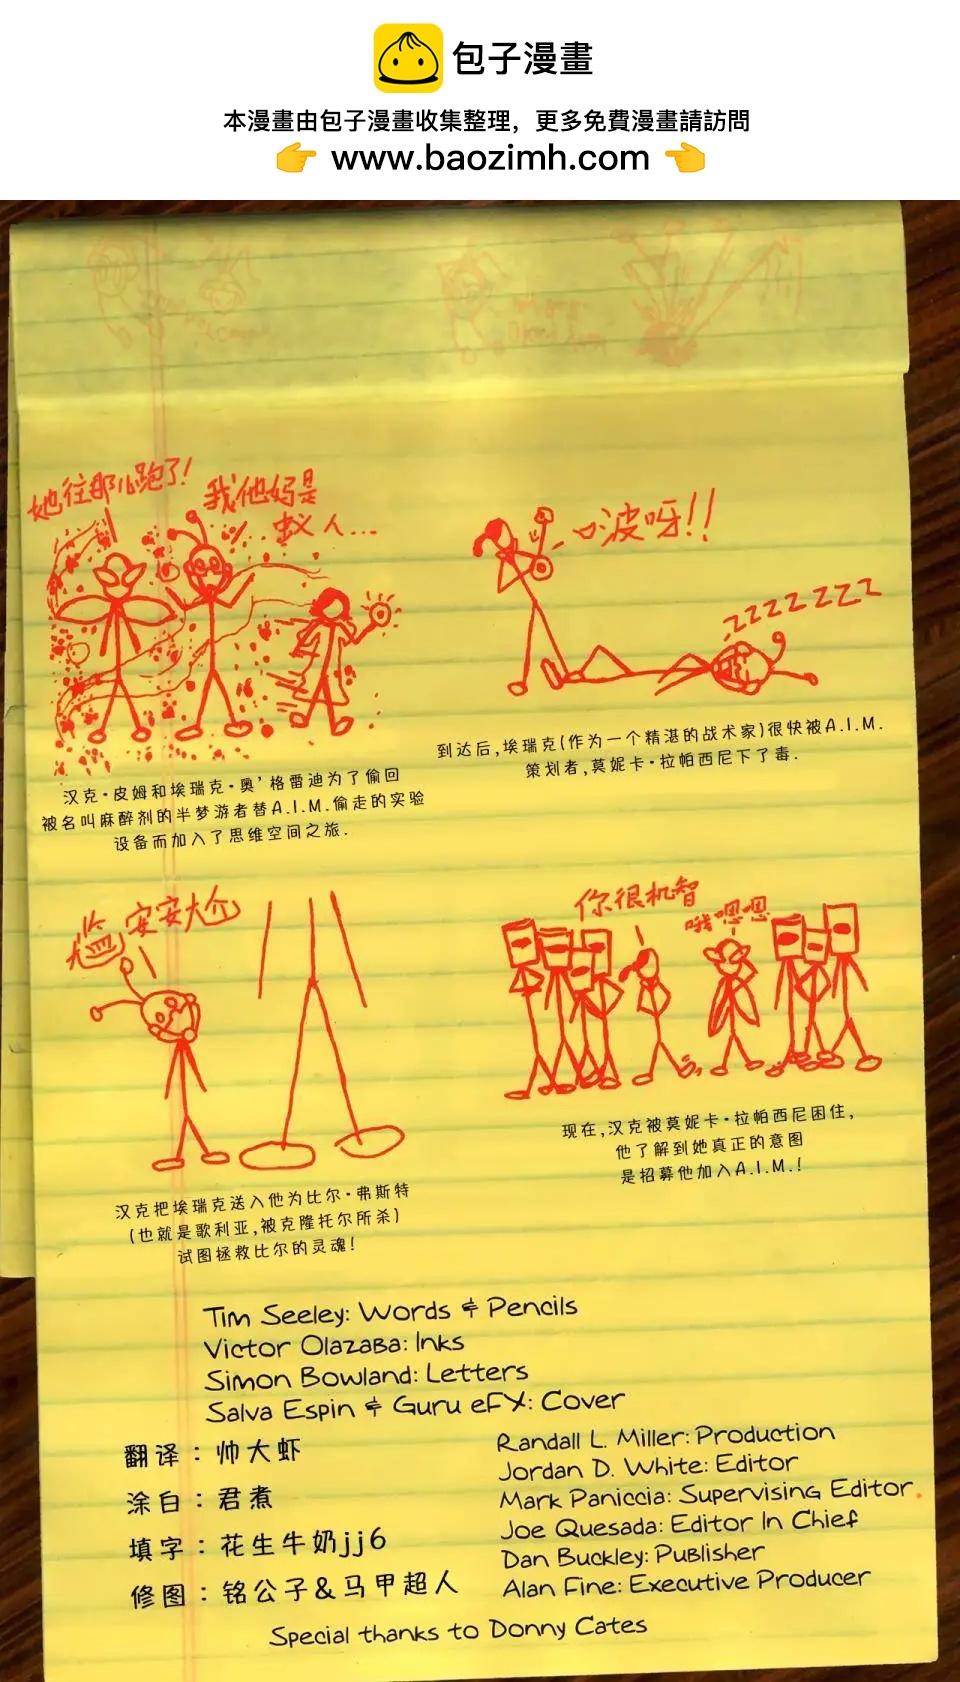 包子漫畫
本漫畫由包子漫畫收集整理，更多免費漫畫請訪問
www.baozimh.com
她往那儿跑了!
我他妈是
蚁人...
汉克·皮姆和埃瑞克·奥'格雷迪为了偷回
被名叫麻醉剂的半梦游者替A.I.M.偷走的实验
设备而加入了思维空间之旅.
啵呀!!
ZZZZZZZ
到达后,埃瑞克(作为一个精湛的战术家)很快被A.I.M.
策划者,莫妮卡·拉帕西尼下了毒.
尴 安安大尬
汉克把埃瑞克送入他为比尔·弗斯特
(也就是歌利亚,被克隆托尔所杀)
试图拯救比尔的灵魂!
你很机智
哦嗯嗯
现在,汉克被莫妮卡·拉帕西尼困住,
他了解到她真正的意图
是招募他加入A.I.M.!
Tim Seeley: Words & Pencils
Victor Olazaba: Inks
Simon Bowland: Letters
Salva Espin & Guru eFX: Cover
翻译：帅大虾
涂白：君煮
填字：花生牛奶jj6
修图：铭公子&马甲超人
Randall L. Miller: Production
Jordan D. White: Editor
Mark Paniccia: Supervising Editor
Joe Quesada: Editor In Chief
Dan Buckley: Publisher
Alan Fine: Executive Producer
Special thanks to Donny Cates